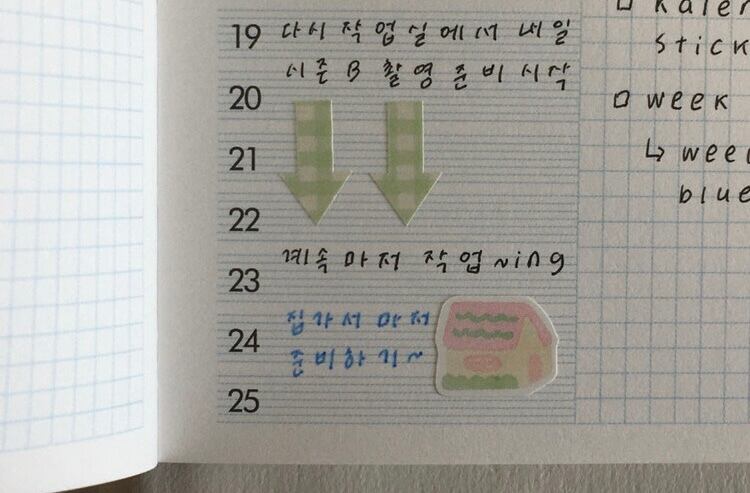 19 다시 작업실에서 내일
시즌 B 촬영 준비 시작
20
21
22
계속 마저 작업~ing
23
집가서 마저
24
준비하기~
25
sticK
□ week
↳ wee
blue